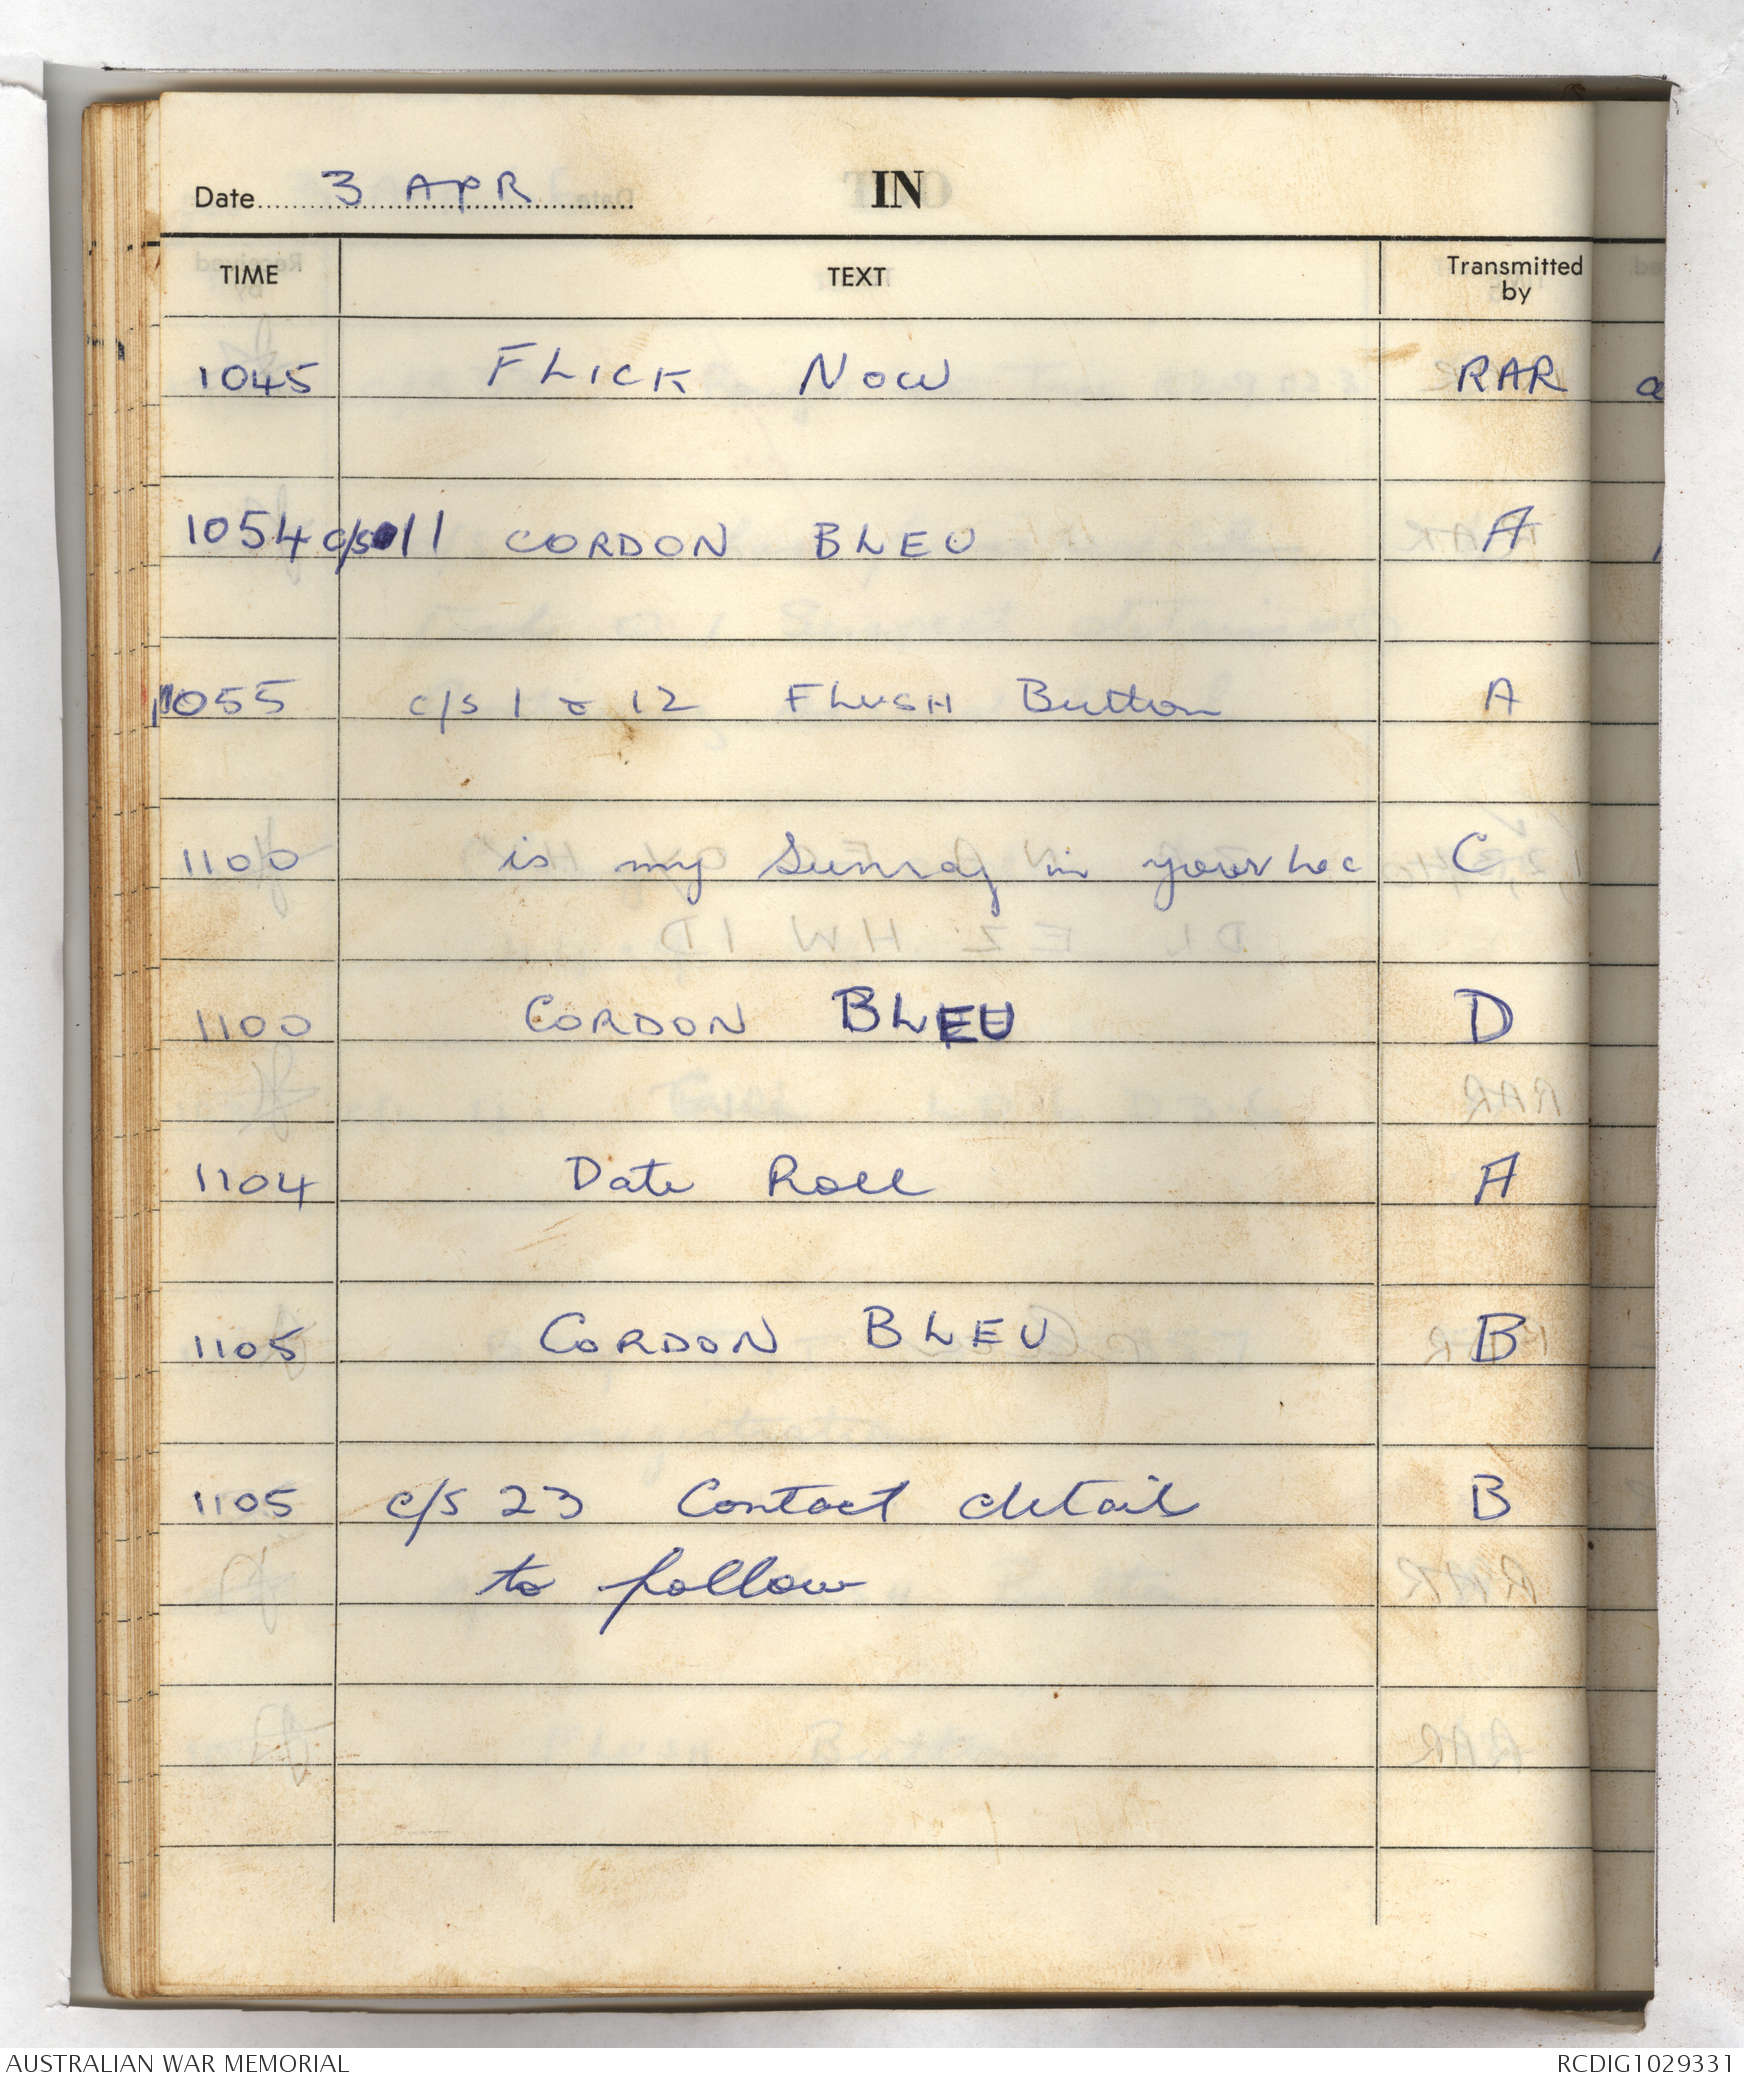 Date 3 APR IN
TIME TEXT Transmitted by
1045 FLICK NOW RAR
1054 c/s 11 CORDON BLEU A
1055 c/s 1 & 12 FLUSH Button A
1100 is my Sunray in your loc C
1100 CORDON BLEU D
1104 Date Roll A
1105 CORDON BLEU B
1105 c/s 23 Contact detail B
to follow
AUSTRALIAN WAR MEMORIAL RCDIG1029331